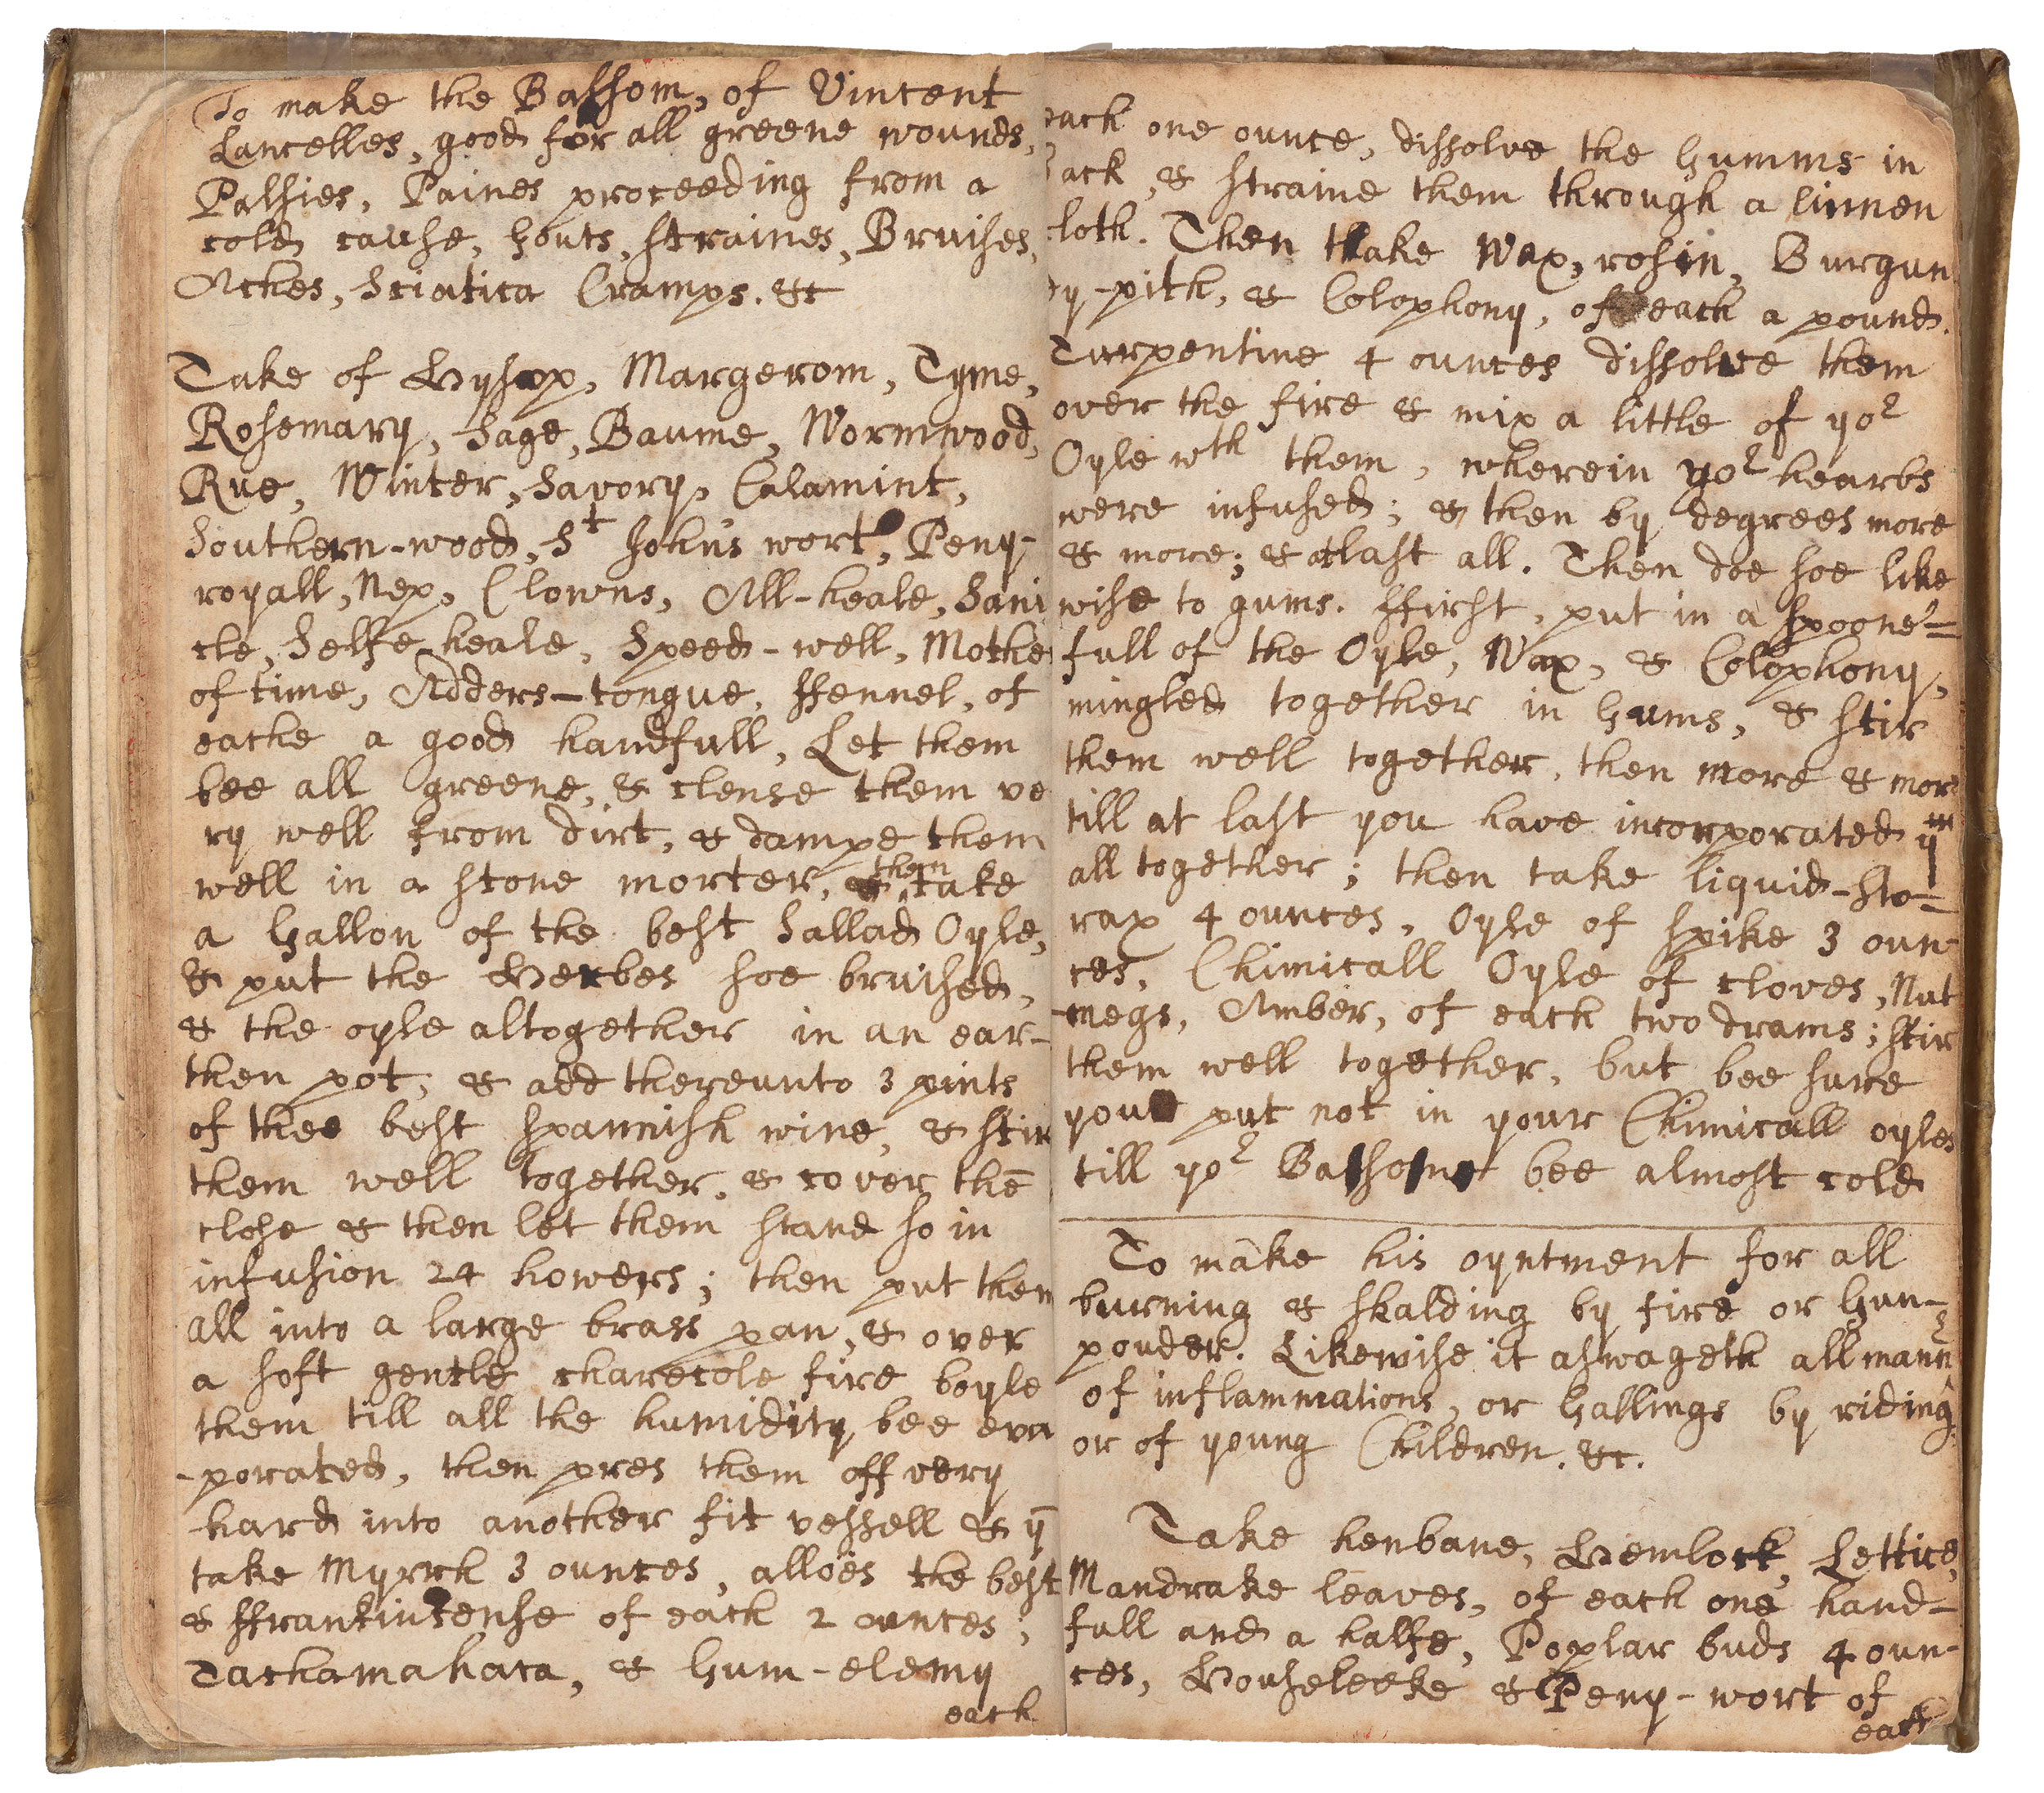 To make the Balsom, of Vincent
Lancelles, good for all greene wounds,
Palsies, Paines proceeding from a
cold cause, Gouts, straines, Bruises,
Aches, Sciatica Cramps. &c
Take of Hysop, Margerom, Tyme,
Rosemary, Sage, Baume, Wormwood,
Rue, Winter, Savory, Calamint,
Southern-wood, St Johns wort, Peny-
royall, Nep, Clowns, All-heale, Sani
cle, Selfe heale, Speed-well, Mothe
of time, Adders-tongue, ffennel, of
eache a good handfull, Let them
bee all greene, & clense them ve
ry well from dirt, & dampe them
well in a stone morter, & then take
a Gallon of the best Sallad Oyle,
& put the Herbes soe bruised,
& the oyle altogether in an ear-
then pot; & add thereunto 3 pints
of thee best spannish wine, & stir
them well together, & cover thē
close & then let them stand so in
infusion 24 howers; then put them
all into a large brass pan, & over
a soft gentle charecole fire boyle
them till all the humidity bee eva
-porated, then pres them off very
hard into another fit vessell & ȳ
take Myrrh 3 ounces, alloës the best
& ffrankincense of each 2 ounces;
Tachamahaca, & Gum-elemy
each
each one ounce, dissolve the Gumms in
Sack, & straine them through a linnen
cloth. Then take Wax, rosin, Burgun
dy-pith, & Colophony, of each a pound.
Turpentine 4 ounces dissolve them
over the fire & mix a little of yor
Oyle wth them, wherein yor hearbs
were infused; & then by degrees more
& more; & atlast all. Then doe soe like
wise to gums. ffirst, put in a spoone=
full of the Oyle, Wax, & Colophony,
mingled together in Gums, & stir
them well together, then more & more
till at last you have incorporated ym
all together; then take liquid-sto=
rax 4 ounces, Oyle of spike 3 oun-
ces, Chimicall Oyle of cloves, Nut
-megs, Amber, of each two drams; stir
them well together, but bee sure
you put not in your Chimicall oyles
till yor Balsome bee almost cold
To make his oyntment for all
burning & skalding by fire or Gun-
pouder. Likewise it aswageth all mann
of inflammations, or Gallings by riding
or of young Children. &c.
Take henbane, Hemlock, Lettice,
Mandrake leaves, of each one hand-
full and a halfe, Poplar buds 4 oun-
ces, Houseleeke & Peny-wort of
each